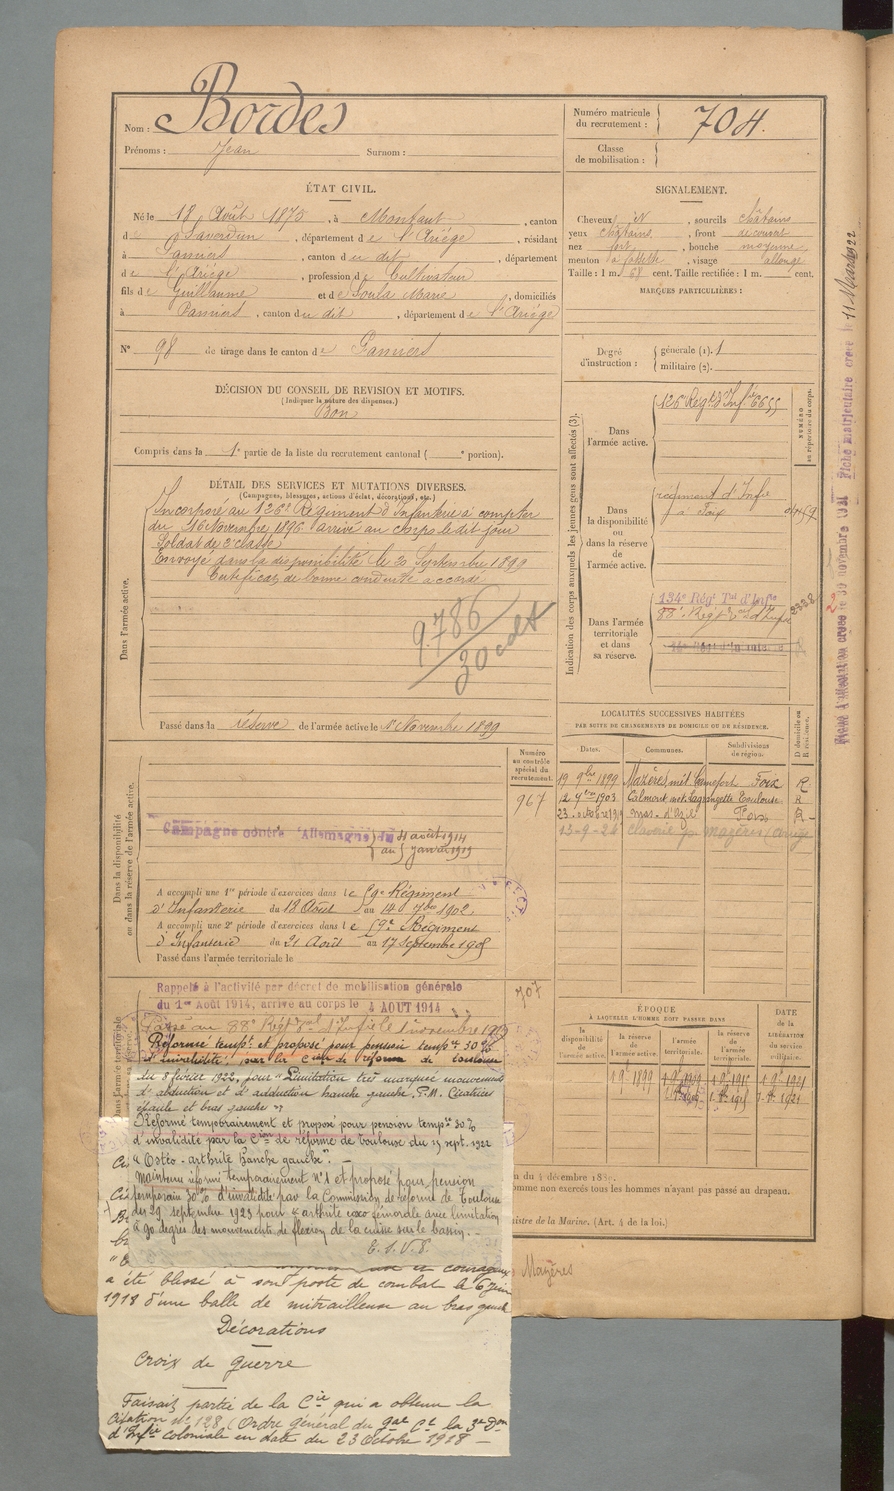 Nom : Bordes
Prénoms : Jean Surnom :
Numéro matricule
du recrutement : 704.
Classe
de mobilisation :
ÉTAT CIVIL.
Né le 18 Août 1875, à Montaut, canton
de Saverdun, département de l'Ariége, résidant
à Pamiers, canton du dit, département
de l'Ariége, profession de Cultivateur
fils de Guillaume et de Soula Marie, domiciliés
à Pamiers, canton du dit, département de l'Ariége
N° 98 de tirage dans le canton de Pamiers
SIGNALEMENT.
Cheveux, sourcils châtains
yeux châtains, front découvert
nez fort, bouche moyenne
menton à fossette, visage allongé
Taille : 1 m. 68 cent. Taille rectifiée : 1 m. cent.
MARQUES PARTICULIÈRES :
Degré
d'instruction :
générale (1). 1
militaire (2).
DÉCISION DU CONSEIL DE REVISION ET MOTIFS.
(Indiquer la nature des dispenses.)
Bon
Compris dans la 1e partie de la liste du recrutement cantonal ( e portion).
DÉTAIL DES SERVICES ET MUTATIONS DIVERSES.
(Campagnes, blessures, actions d'éclat, décorations, etc.)
Dans l'armée active.
Incorporé au 126e Régiment d'Infanterie à compter
du 16 Novembre 1896 arrivé au corps le dit jour
Soldat de 2e classe
Envoyé dans la disponibilité le 20 Septembre 1899
Certificat de bonne conduite accordé
9.786
30 cdt
Passé dans la réserve de l'armée active le 1er Novembre 1899
Indication des corps auxquels les jeunes gens sont affectés (3).
Dans
l'armée active.
126e Régt d'Infie 6655
NUMÉRO
au répertoire du corps.
Dans
la disponibilité
ou
dans la réserve
de
l'armée active.
régiment d'Infie
à Foix
Dans l'armée
territoriale
et dans
sa réserve.
134e Régt Tal d'Infie
88e Régt Tal d'Infie
2328
Fiche matriculaire créée le 11 Mars 1922
LOCALITÉS SUCCESSIVES HABITÉES
PAR SUITE DE CHANGEMENTS DE DOMICILE OU DE RÉSIDENCE.
D domicile ou
R résidence.
Dates. Communes. Subdivisions
de région.
19 9bre 1899 Mazères Foix R
1903 Calmont Toulouse R
23 octobre Foix R
13-9-26 Mazères (Ariège
Dans la disponibilité
ou dans la réserve de l'armée active.
Numéro
au contrôle
spécial du
recrutement.
967
Campagne contre l'Allemagne du 4 août 1914
au 5 janvier 1919
A accompli une 1re période d'exercices dans le 59e Régiment
d'Infanterie du 18 Août au 14 7bre 1902.
A accompli une 2e période d'exercices dans le 59e Régiment
d'Infanterie du 21 Août au 17 Septembre 1905
Passé dans l'armée territoriale le
Rappelé à l'activité par décret de mobilisation générale
du 1er Août 1914, arrivé au corps le 4 AOUT 1914
707
Passé au 88e Régt Tal d'Infie le 1 novembre
Réformé tempt et proposé pour pension tempre 30 %
d'invalidité, par la Cion de réforme de
du 8 février 1922, pour "Limitation très marquée mouvements
d'abduction et d'adduction hanche gauche. P.M. Cicatrices
épaule et bras gauche"
Réformé temporairement et proposé pour pension tempre 30 %
d'invalidité par la Cion de réforme de Toulouse du 13 sept. 1922
"Ostéo-arthrite hanche gauche". —
Maintenu réformé temporairement n° 1 et proposé pour pension
temporaire 30 % d'invalidité par la Commission de réforme de Toulouse
du 29 septembre 1923 pour "arthrite coxo fémorale avec limitation
à 90 degrés des mouvements de flexion de la cuisse sur le bassin. —
courageux
a été blessé à son poste de combat le 6 juin
1918 d'une balle de mitrailleuse au bras gauche
Décorations
Croix de guerre
Faisait partie de la Cie qui a obtenu la
Citation n° 128 (Ordre général du Gal Ct la 3e Don
d'Infie coloniale en date du 23 Octobre 1918 —
ÉPOQUE
À LAQUELLE L'HOMME DOIT PASSER DANS
la
disponibilité
de l'armée active.
la réserve
de
l'armée active.
l'armée
territoriale.
la réserve
de l'armée
territoriale.
DATE
de la
LIBÉRATION
du service
militaire.
1 9bre 1899
du 4 décembre 1889.
comme non exercés tous les hommes n'ayant pas passé au drapeau.
ministre de la Marine. (Art. 4 de la loi.)
Mazères